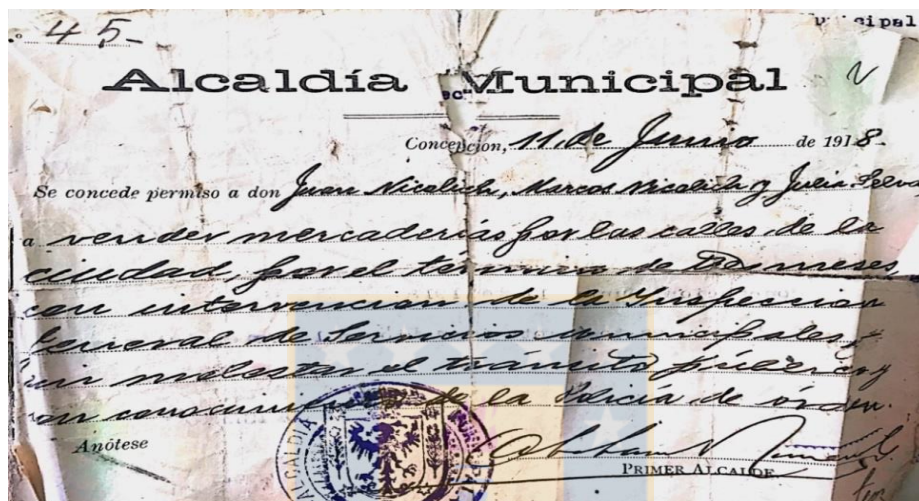 45-
Alcaldía Municipal
Concepción, 11 de Junio de 1918.
Se concede permiso a don Juan Nicolich, Marcos Nicolich y Julia
a vender mercaderías por las calles de la
ciudad, por el término de meses,
con intervencion de la Inspeccion
General de Servicios municipales,
sin molestar el tránsito público y
con conocimiento de la Policía de órden.
Anótese
ALCALDIA
PRIMER ALCALDE